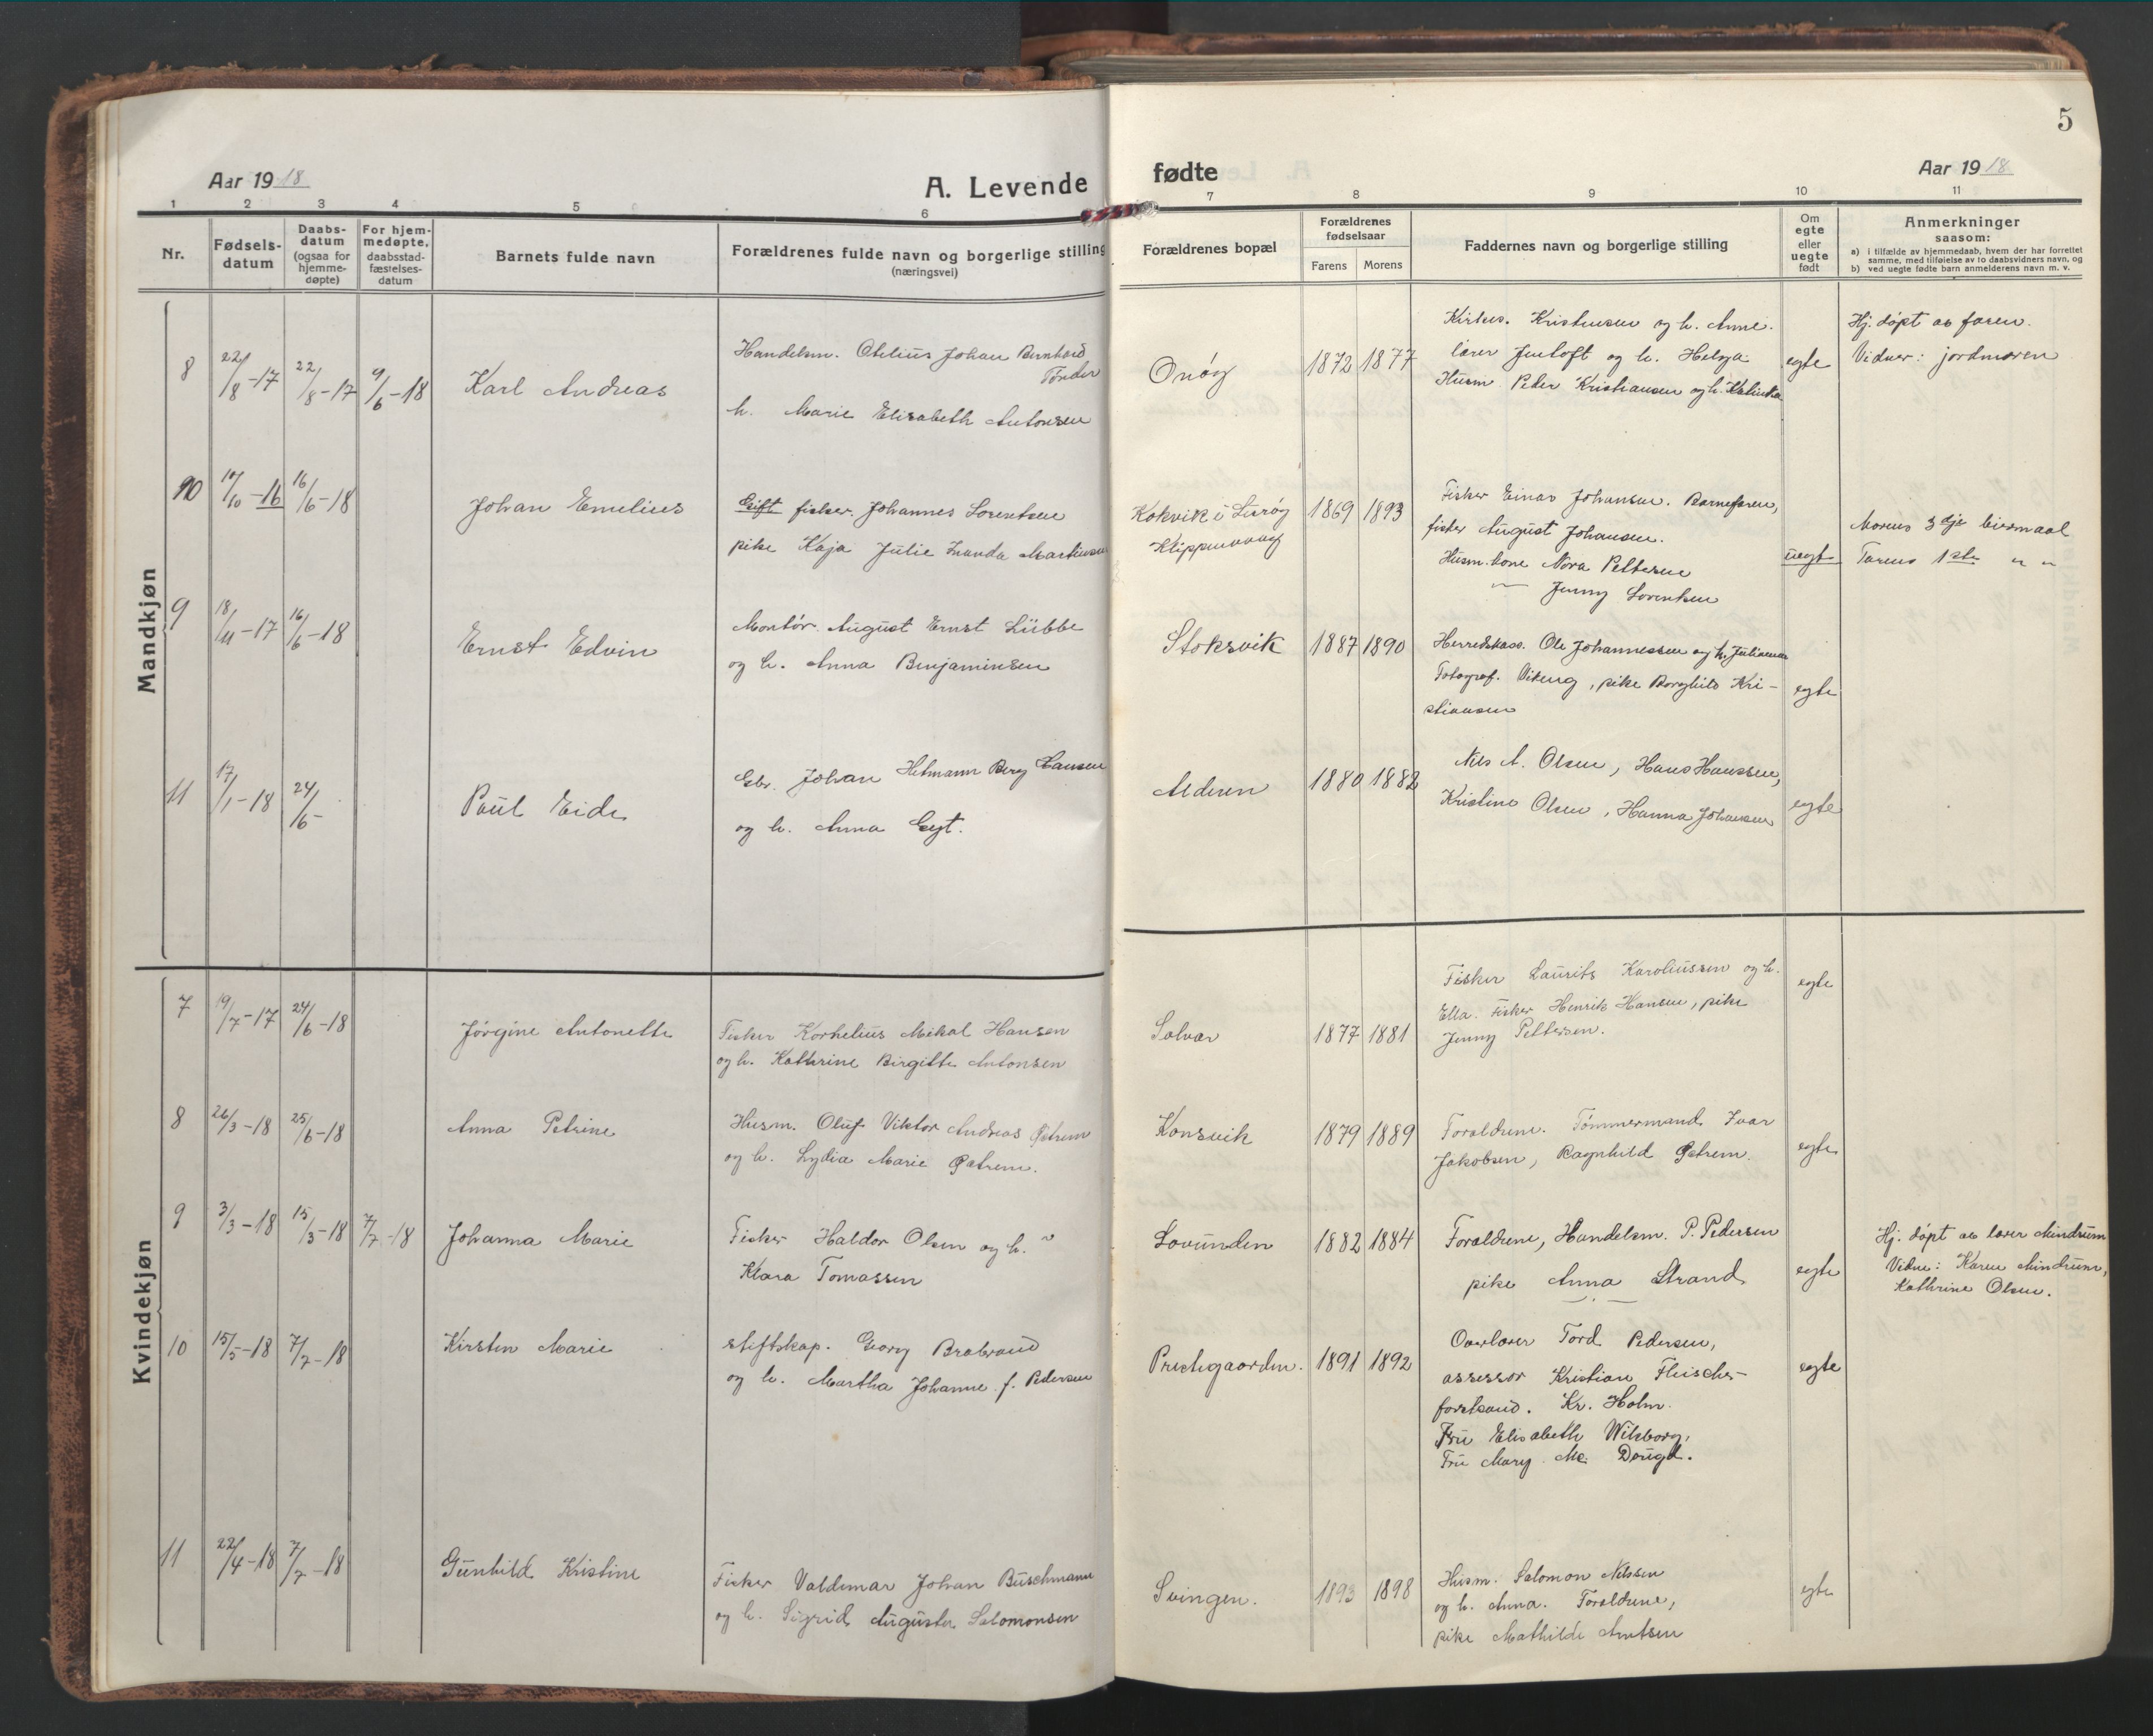 5
Aar 1918
A. Levende
fødte
Aar 1918
1 2 3 4 5 6 7 8 9 10 11
Nr.
Fødsels-
datum
Daabs-
datum
(ogsaa for
hjemme-
døpte)
For hjem-
medøpte,
daabsstad-
fæstelses-
datum
Barnets fulde navn
Forældrenes fulde navn og borgerlige stilling
(næringsvei)
Forældrenes bopæl
Forældrenes
fødselsaar
Farens Morens
Faddernes navn og borgerlige stilling
Om
egte
eller
uegte
født
Anmerkninger
saasom:
a) i tilfælde av hjemmedaab, hvem der har forrettet
samme, med tilføielse av to daabsvidners navn, og
b) ved uegte fødte barn anmelderens navn m. v.
Mandkjøn
8 22/8-17 22/8-17 9/6-18 Karl Andreas
Handelsm. Otelius Johan Bernhard
Tønder
h. Marie Elisabeth Antonsen
Onøy 1872 1877
Kirkes. Kristensen og h. Anne.
lærer Jentoft og h. Helga
Husm. Peder Kristiansen og h. Katinka
egte
Hj. døpt av faren.
Vidner: jordmoren
10 10/10-16 16/6-18 Johan Emelius
Gift fisker. Johannes Lorentsen
pike Kaja Julie Martinsen
Kokvik i Lurøy
1869 1893
Fisker Einar Johansen. Barnefaren,
fisker August Johansen.
Husm.kone Nora Pettersen
— Jenny Lorentsen
uegt
Morens 3dje leiermaal
Farens 1ste " "
9 18/11-17 16/6-18 Ernst Edvin
Montør. August Ernst Lübbe
og h. Anna Benjaminsen
Stoksvik 1887 1890
Herredskass. Ole Johannessen og h. Julianna
Fotograf. Viking, pike Borghild Kri-
stiansen
egte
11 17/1-18 24/6- Paul Eide
Gbr. Johan Hetmann Berg Hansen
og h. Anna Gyt.
Alderen 1880 1882
Nils A. Olsen, Hans Hanssen,
Kristine Olsen, Hanna Johansen
egte
Kvindekjøn
7 19/7-17 24/6-18 Jørgine Antonette
Fisker Kornelius Mikal Hansen
og h. Kathrine Birgitte Antonsen
Solvær 1877 1881
Fisker Laurits Karoliussen og h.
Ella. Fisker Henrik Hansen, pike
Jenny Pettersen.
egte
8 26/3-18 25/6-18 Anna Petrine
Husm. Oluf Viktor Andreas Østrem
og h. Lydia Marie Østrem.
Konsvik 1879 1889
Forældrene. Tømmermand Ivar
Jakobsen, Ragnhild Østrem.
egte
9 3/3-18 15/3-18 7/7-18 Johanna Marie
Fisker Haldor Olsen og h.
Klara Tomassen
Lovunden 1882 1884
Forældrene, Handelsm. P. Pedersen
pike Anna Strand
egte
Hj. døpt av lærer Mindrum
Vidne: Karen Mindrum,
Kathrine Olsen.
10 15/5-18 7/7-18 Kirsten Marie
stiftskap. Georg Brabrand
og h. Martha Johanne f. Pedersen
Prestegaarden. 1891 1892
Overlærer Tord Pedersen,
assessor Kristian Fleischer
forstkand. Kr. Holm.
Fru Elisabeth Wilsborg,
Fru Mary Mc Dougd.
egte
11 22/4-18 7/7-18 Gunhild Kristine
Fisker Valdemar Johan Buschmann
og h. Sigrid Augusta Salomonsen
Svingen. 1893 1898
Husm. Salomon Nilssen
og h. Anna. Forældrene,
pike Mathilde Arntsen
egte